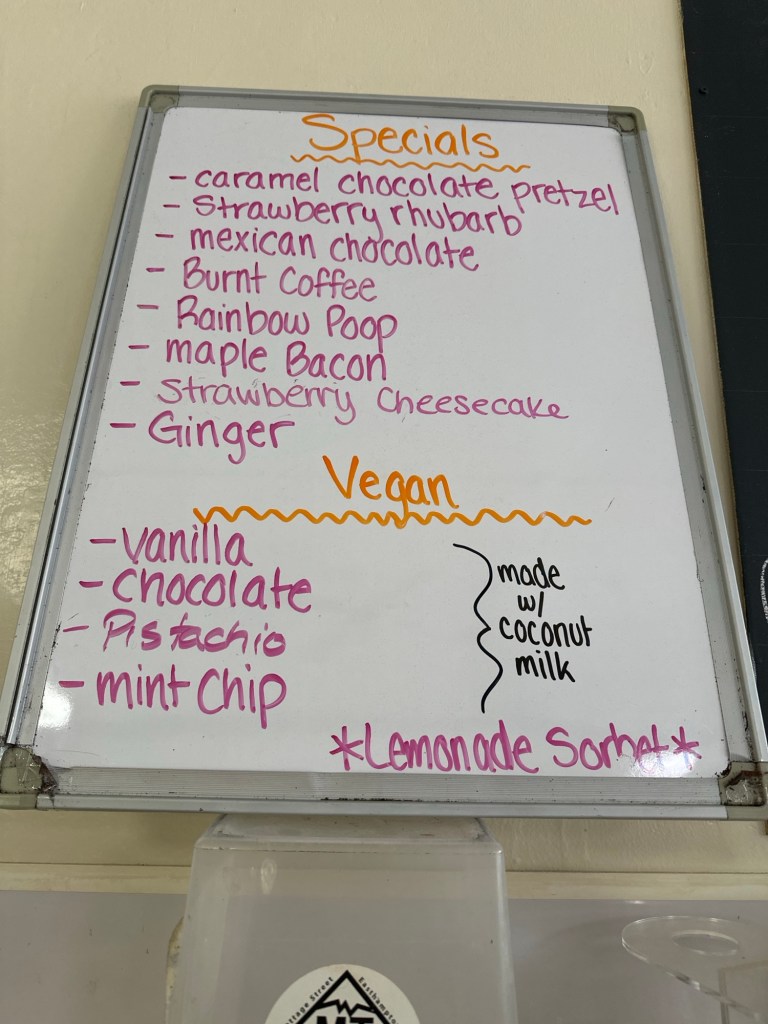 Specials
- caramel chocolate pretzel
- Strawberry rhubarb
- mexican chocolate
- Burnt Coffee
- Rainbow Poop
- maple Bacon
- Strawberry Cheesecake
- Ginger
Vegan
- vanilla
- Chocolate
- Pistachio
- mint Chip
made
w/
coconut
milk
*Lemonade Sorbet*
Street
Easthampton
MT